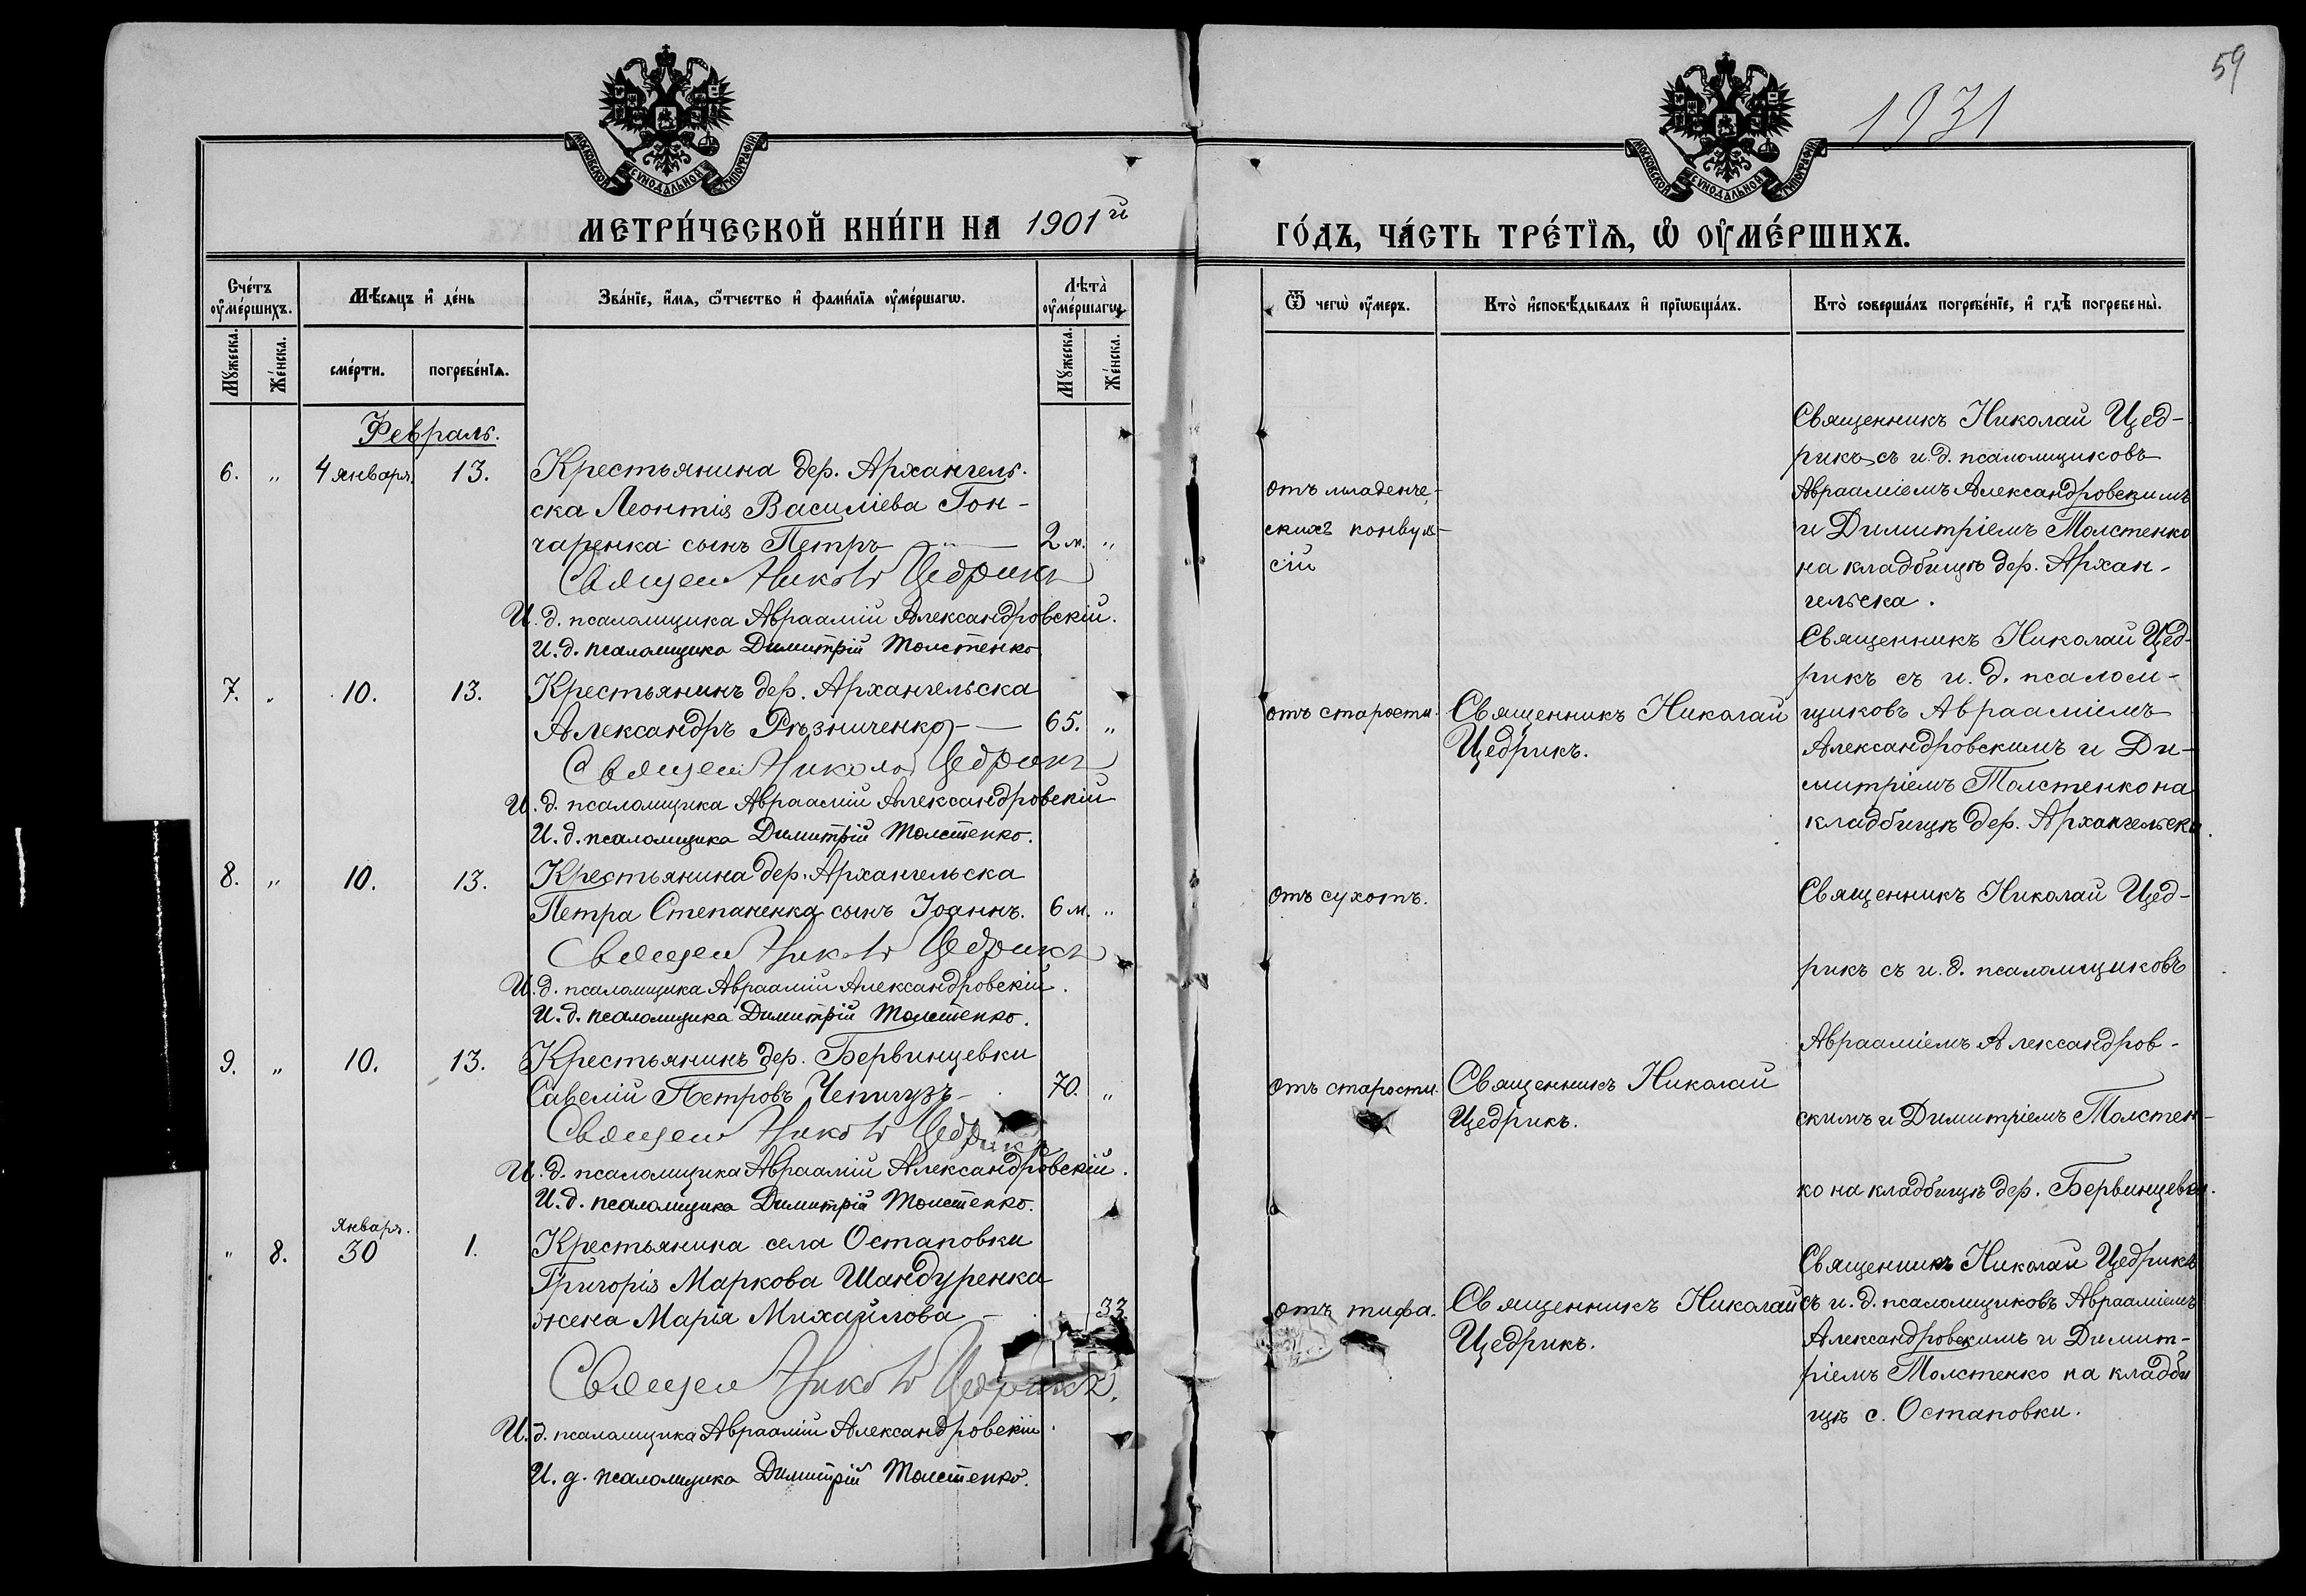 59
1931
МОСКОВСКОЙ СѴНОДАЛЬНОЙ ТИПОГРАФІИ
МОСКОВСКОЙ СѴНОДАЛЬНОЙ ТИПОГРАФІИ
МЕТРИ́ЧЕСКОЙ КНИ́ГИ НА 1901й
ГО́ДЪ, ЧА́СТЬ ТРЕ́ТЇѦ, Ѡ ОУМЕ́РШИХЪ.
Сче́тъ оуме́ршихъ.
Мѣ́сѧцъ и де́нь
Зва́нїе, и́мѧ, ѻ҆́тчество и фами́лїѧ оуме́ршагѡ.
Лѣта̀ оуме́ршагѡ
Ѿ чегѡ̀ оу́меръ.
Кто̀ и҆сповѣ́дывалъ и прїѡбща́лъ.
Кто̀ соверша́лъ погребе́нїе, и гдѣ̀ погребены̀.
Мꙋ́жеска.
Же́нска.
сме́рти.
погребе́нїѧ.
Мꙋ́жеска.
Же́нска.
Февраль.
6. „ 4 января. 13. Крестьянина дер. Архангель-
ска Леонтія Василіева Гон-
чаренка сынъ Петръ — 2 м. „
Священ Никол Щедрикъ
И. д. псаломщика Авраамій Александровскій.
И. д. псаломщика Димитрій Толстенко
отъ младенче-
скихъ конвуль-
сій
Священникъ Николай Щед-
рикъ съ и. д. псаломщиковъ
Авраамiемъ Александровскимъ
и Димитріемъ Толстенко
на кладбищѣ дер. Архан-
гельска.
7. „ 10. 13. Крестьянинъ дер. Архангельска
Александръ Рѣзниченко — 65. „
Священ Никола Щедрикъ
И. д. псаломщика Авраамій Александровскій
И. д. псаломщика Димитрій Толстенко.
отъ старости.
Священникъ Николай
Щедрикъ.
Священникъ Николай Щед-
рикъ съ и. д. псалом-
щиковъ Авраамiемъ
Александровскимъ и Ди-
митріемъ Толстенко на
кладбищѣ дер. Архангельска.
8. „ 10. 13. Крестьянина дер. Архангельска
Петра Степаненка сынъ Іоаннъ. 6 м. „
Священ Никол Щедрикъ
И. д. псаломщика Авраамій Александровскій.
И. д. псаломщика Димитрій Толстенко.
отъ сухотъ.
Священникъ Николай Щед-
рикъ съ и. д. псаломщиковъ
9. „ 10. 13. Крестьянинъ дер. Бервинцевки
Савелій Петровъ Чепигузъ — 70. „
Священ Никол Щедрикъ
И. д. псаломщика Авраамій Александровскій.
И. д. псаломщика Димитрій Толстенко.
отъ старости.
Священникъ Николай
Щедрикъ.
Авраамiемъ Александров-
скимъ и Димитріемъ Толстен-
ко на кладбищѣ дер. Бервинцевки.
Январь.
„ 8. 30 1. Крестьянина села Остаповки
Григорія Маркова Шандуренка
жена Марія Михайлова — 33
Священ Никол Щедрикъ.
И. д. псаломщика Авраамій Александровскій.
И. д. псаломщика Димитрій Толстенко.
отъ тифа.
Священникъ Николай
Щедрикъ.
Священникъ Николай Щедрикъ
съ и. д. псаломщиковъ Авраамiемъ
Александровскимъ и Димит-
ріемъ Толстенко на кладби
щѣ с. Остаповки.